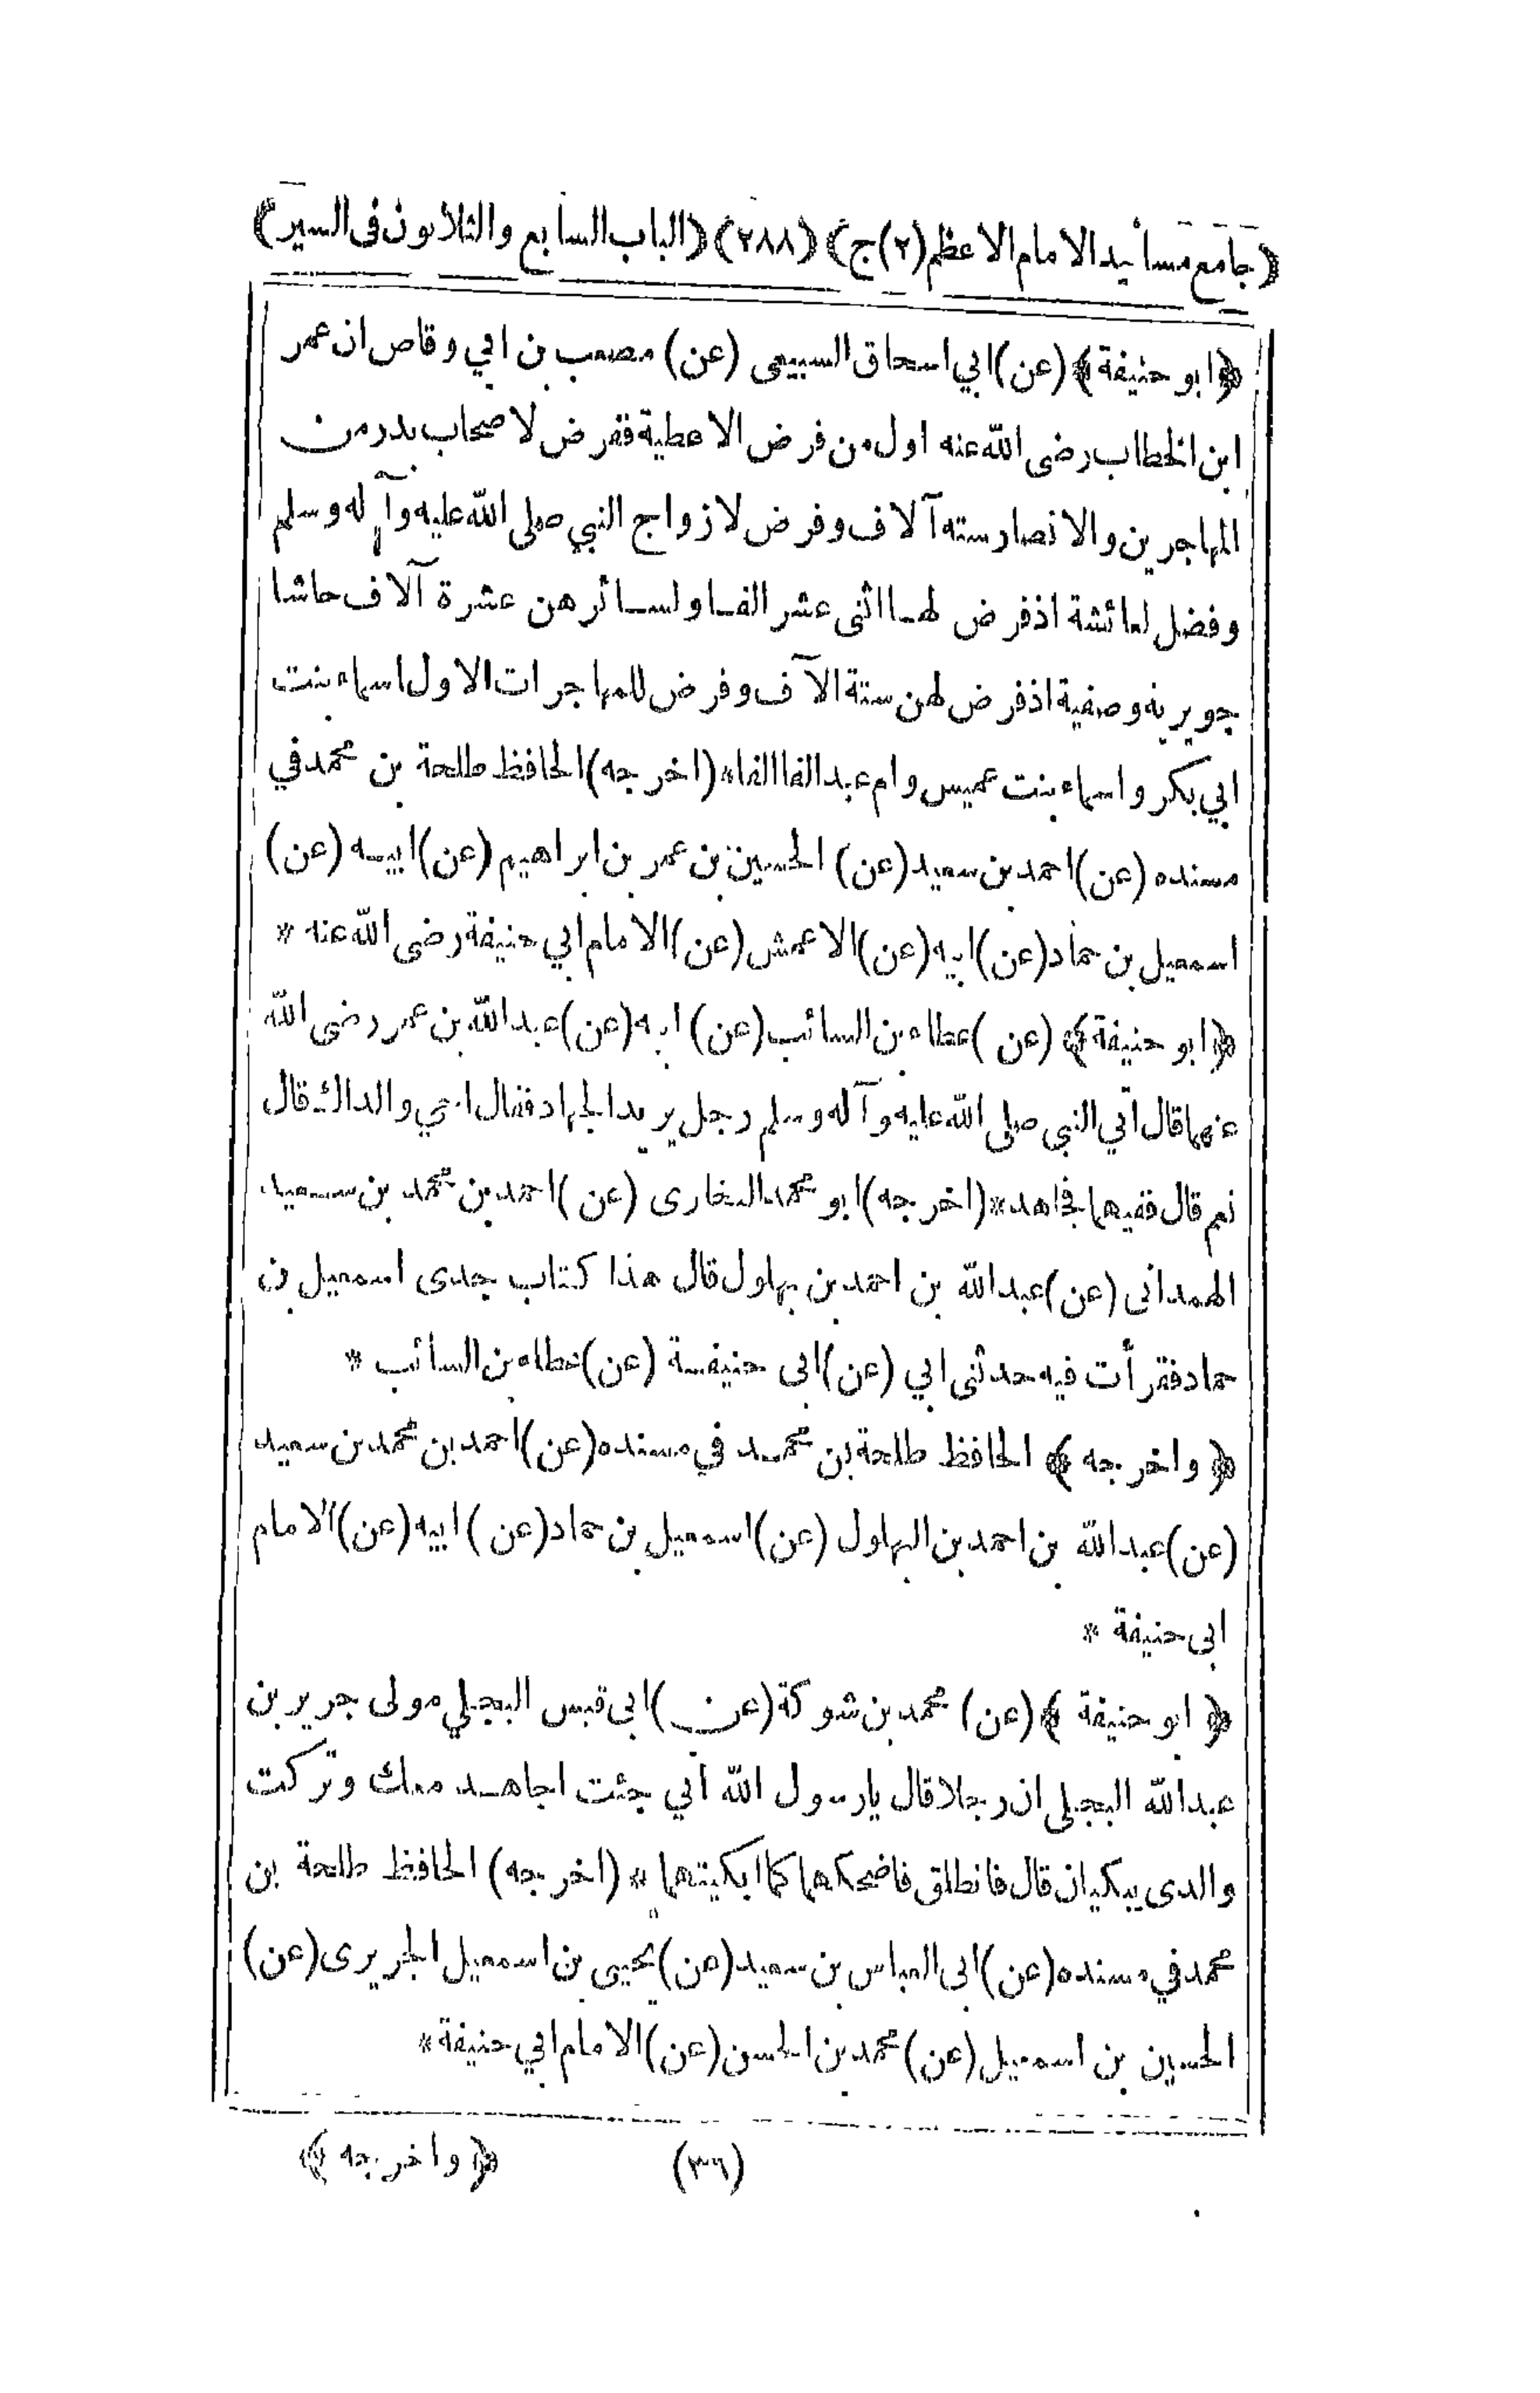 ﴿جامع مسانيد الامام الاعظم (٢)ج﴾ (٢٨٨) ﴿الباب السابع والثلاثون فى السير﴾
﴿ابو حنيفة﴾ (عن) ابي اسحاق السبيعى (عن) مصعب بن ابي وقاص ان عمر
ابن الخطاب رضى الله عنه اول من فرض الاعطية ففرض لاصحاب بدر من
المهاجرين والانصار سته آلاف وفرض لازواج النبي صلى الله عليه وآله وسلم
وفضل لعائشة اذ فرض لها اثنى عشر الفا ولسائرهن عشرة آلاف حاشا
جويريه وصفية اذ فرض لهن ستة الآف وفرض للمهاجرات الاول اسماء بنت
ابي بكر واسماء بنت عميس وام عبد الفا الفاء (اخرجه) الحافظ طلحة بن محمد في
مسنده (عن) احمد بن سعيد (عن) الحسين بن عمر بن ابراهيم (عن) ابيه (عن)
اسمعيل بن حماد (عن) ابيه (عن) الاعمش (عن) الامام ابي حنيفة رضى الله عنه *
﴿ابو حنيفة﴾ (عن) عطاء بن السائب (عن) ابيه (عن) عبد الله بن عمر رضى الله
عنهما قال اتي النبى صلى الله عليه وآله وسلم رجل يريد الجهاد فقال احي والداك قال
نعم قال ففيهما فجاهد * (اخرجه) ابو محمد البخارى (عن) احمد بن محمد بن سعيد
الهمدانى (عن) عبد الله بن احمد بن بهلول قال هذا كتاب جدى اسمعيل بن
حماد فقرأت فيه حدثنى ابي (عن) ابى حنيفة (عن) عطاء بن السائب *
﴿واخرجه﴾ الحافظ طلحة بن محمد في مسنده (عن) احمد بن محمد بن سعيد
(عن) عبد الله بن احمد بن البهلول (عن) اسمعيل بن حماد (عن) ابيه (عن) الامام
ابى حنيفة *
﴿ابو حنيفة﴾ (عن) محمد بن شوكة (عن) ابى قبس البجلي مولى جرير بن
عبد الله البجلى ان رجلا قال يا رسول الله اني جئت اجاهد معك وتركت
والدى يبكيان قال فانطلق فاضحكهما كما ابكيتهما * (اخرجه) الحافظ طلحة بن
محمد في مسنده (عن) ابى العباس بن سعيد (عن) يحيى بن اسمعيل الجريرى (عن)
الحسين بن اسمعيل (عن) محمد بن الحسن (عن) الامام ابي حنيفة *
(٣٦) ﴿واخرجه﴾